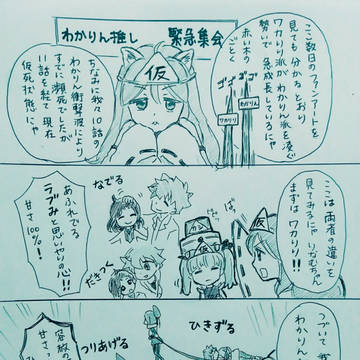 わかりん推し 緊急集会
ここ数日のファンアートを
見ても分かるとおり
ワカリり派がわかりん派を凌ぐ
勢いで急成長しているにゃ
赤い木の
ごとく
ゴゴゴゴ
わかりん
ワカリり
仮
ちなみに我々10話の
わかりん衝撃波により
すでに瀕死でしたが
11話を経て現在
仮死状態にゃ
ここは両者の違いを
見てみるにゃ
まずはワカリり!!
仮
ばっ
なでる
だきつく
あふれでる
ラブみと思いやりの心!!
甘さ100%!
つづいて
わかりん
ひきずる
つりあげる
容赦の
甘さ